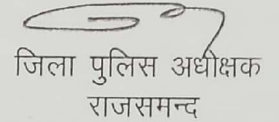 जिला पुलिस अधीक्षक
राजसमन्द